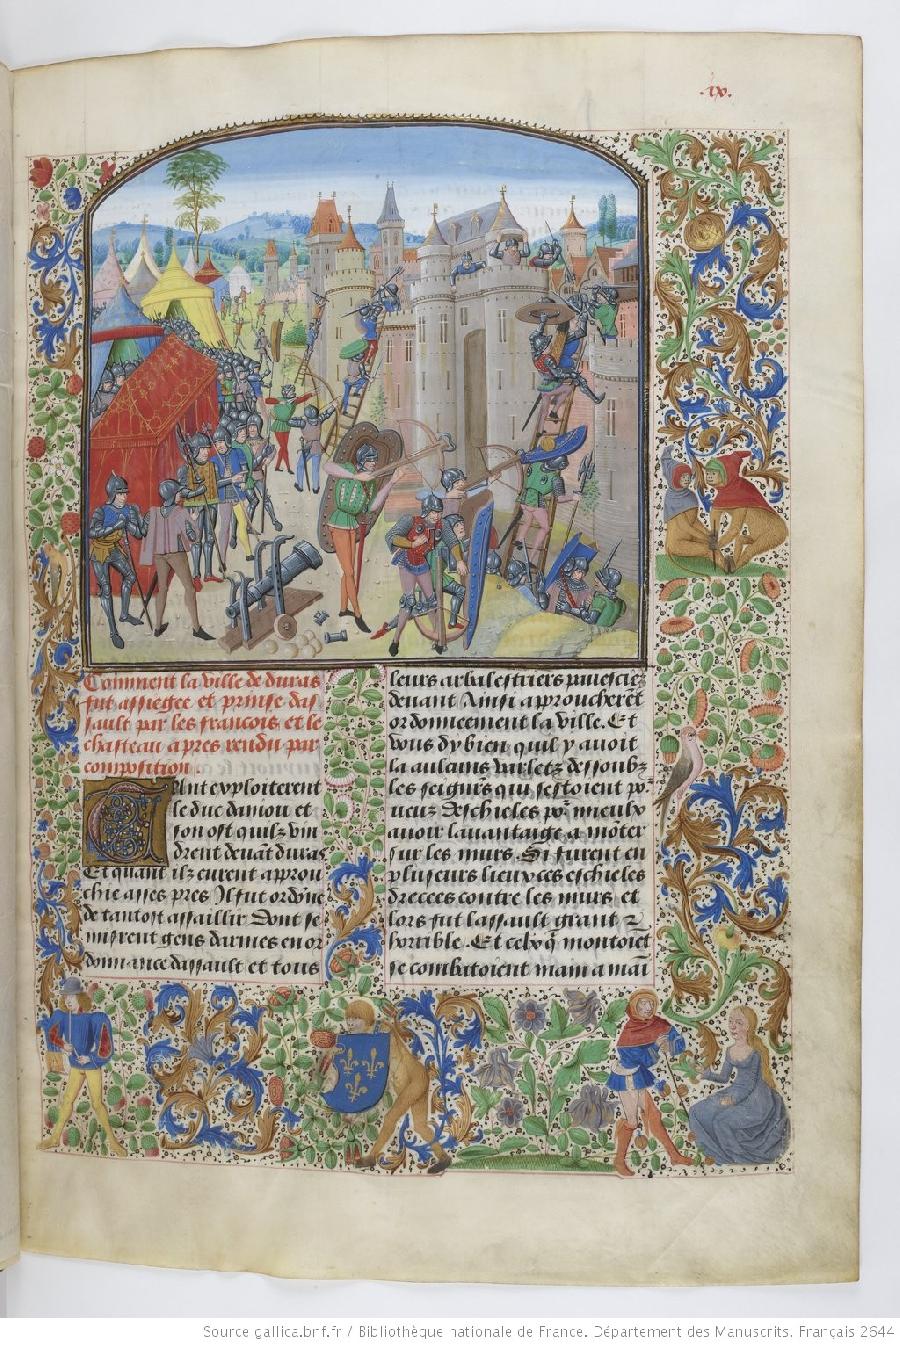 .ix.
Comment la ville de duras
fut assiegee et prinse das
sault par les francois et le
chasteau apres rendu par
composition
Tant exploiterent
le duc daniou et
son ost quilz vin
drent deuãt duras
Et quant ilz eurent approu
chie asses pres Il fut ordõne
de tantost assaillir Dont se
mirent gens darmes en or
donnance dassault et tous
leurs arbalestriers pauesciez
deuant Ainsi aproucherẽt
ordonneement la ville. Et
vous dy bien quil y auoit
la aulcuns varletz dessoubz
les seigñrs qui sestoient põ
ueuz deschieles põ mieulx
auoir lauantaige a mõter
sur les murs. Si furent en
pluseurs lieux ces eschieles
drecees contre les murs et
lors fut lassault grant &
horrible. Et ceulx q̃ montoiẽt
se combatoient main a maĩ
Source gallica.bnf.fr / Bibliothèque nationale de France. Département des Manuscrits. Français 2644